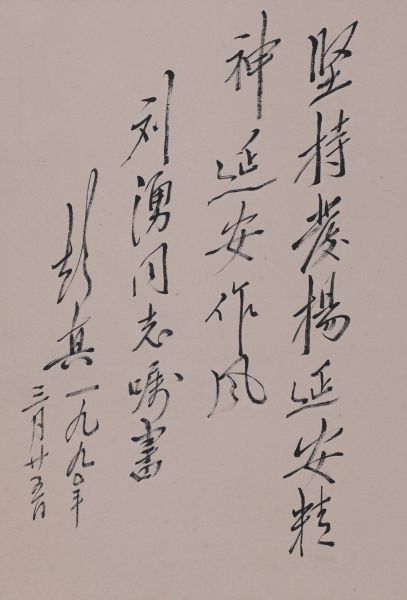 坚持发揚延安精
神延安作风
刘湧同志嘱書
彭真一九九〇年
三月廿五日